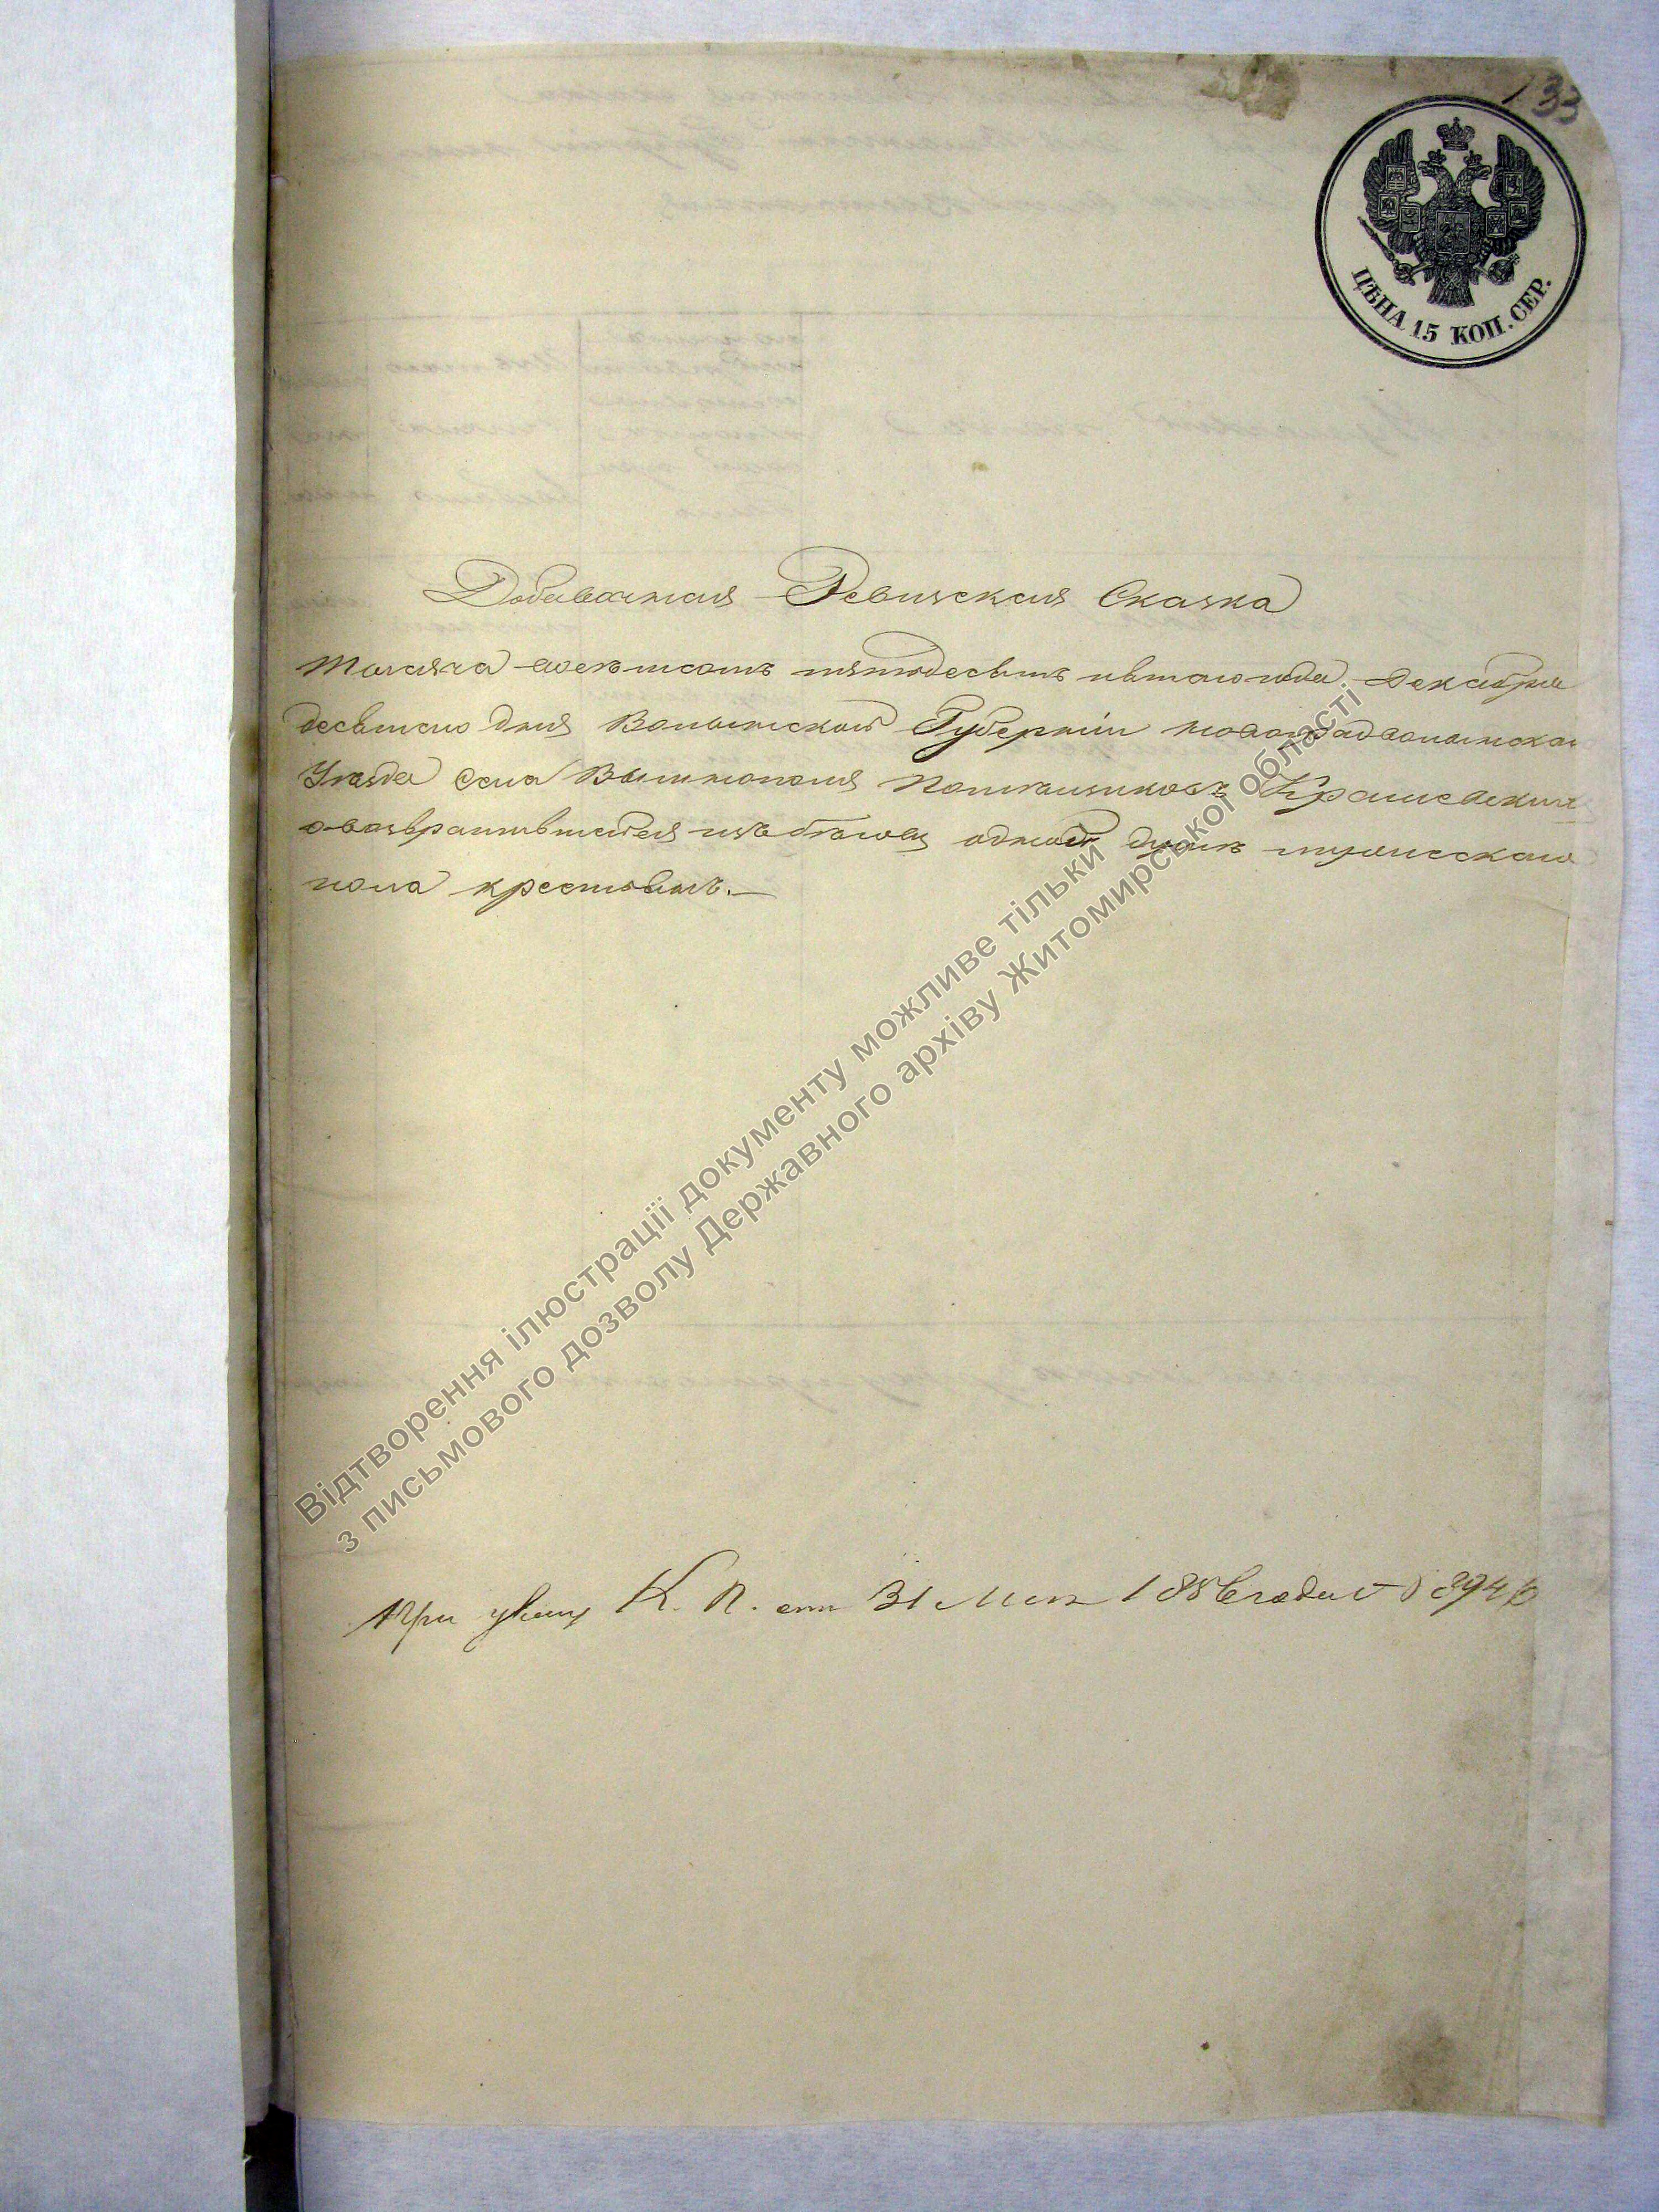 133
ЦѢНА 15 КОП. СЕР.
Добавочная Ревизская Сказка
Тысяча восемьсотъ пятьдесятъ пятаго года Декабря
десятаго дня Волынской Губерніи Новоградволынскаго
Уѣзда Села Вышполя Помѣщиковъ Крашевскихъ
о возвратившейся изъ бѣговъ одной душѣ мужескаго
пола крестьянъ.
При указѣ К. П. отъ 31 Мая 1856 года 8946
Відтворення ілюстрації документу можливе тільки
з письмового дозволу Державного архіву Житомирської області